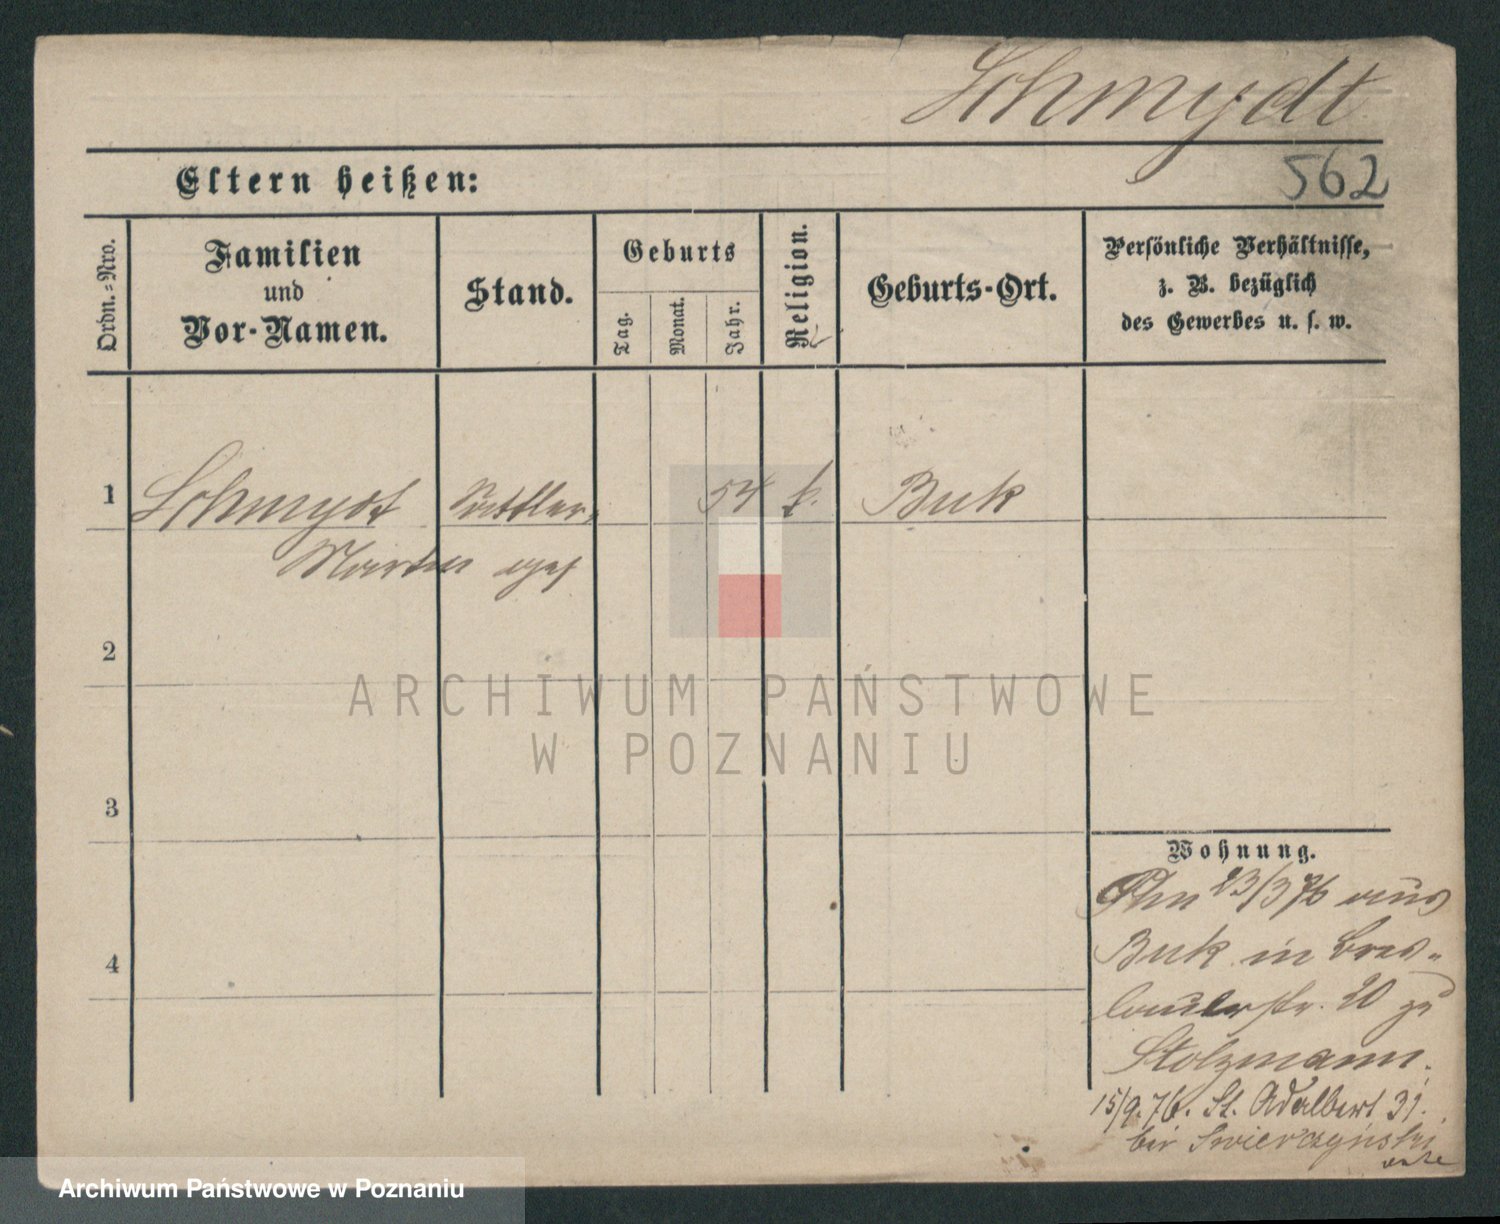 Schmydt
562
Eltern heißen:
Ordn.-Nro.
Familien
und
Vor-Namen.
Stand.
Geburts
Tag.
Monat.
Jahr.
Religion.
Geburts-Ort.
Persönliche Verhältnisse,
z. B. bezüglich
des Gewerbes u. s. w.
1 Schmydt Sattler 54 k. Buk
Martin
2
3
4
Wohnung.
23/3 76 aus
Buk in Bres-
lauerstr. 20 zu
Stolzmann.
15/9. 76. St. Adalbert 31.
bei Swierczyński
ARCHIWUM PAŃSTWOWE
W POZNANIU
Archiwum Państwowe w Poznaniu